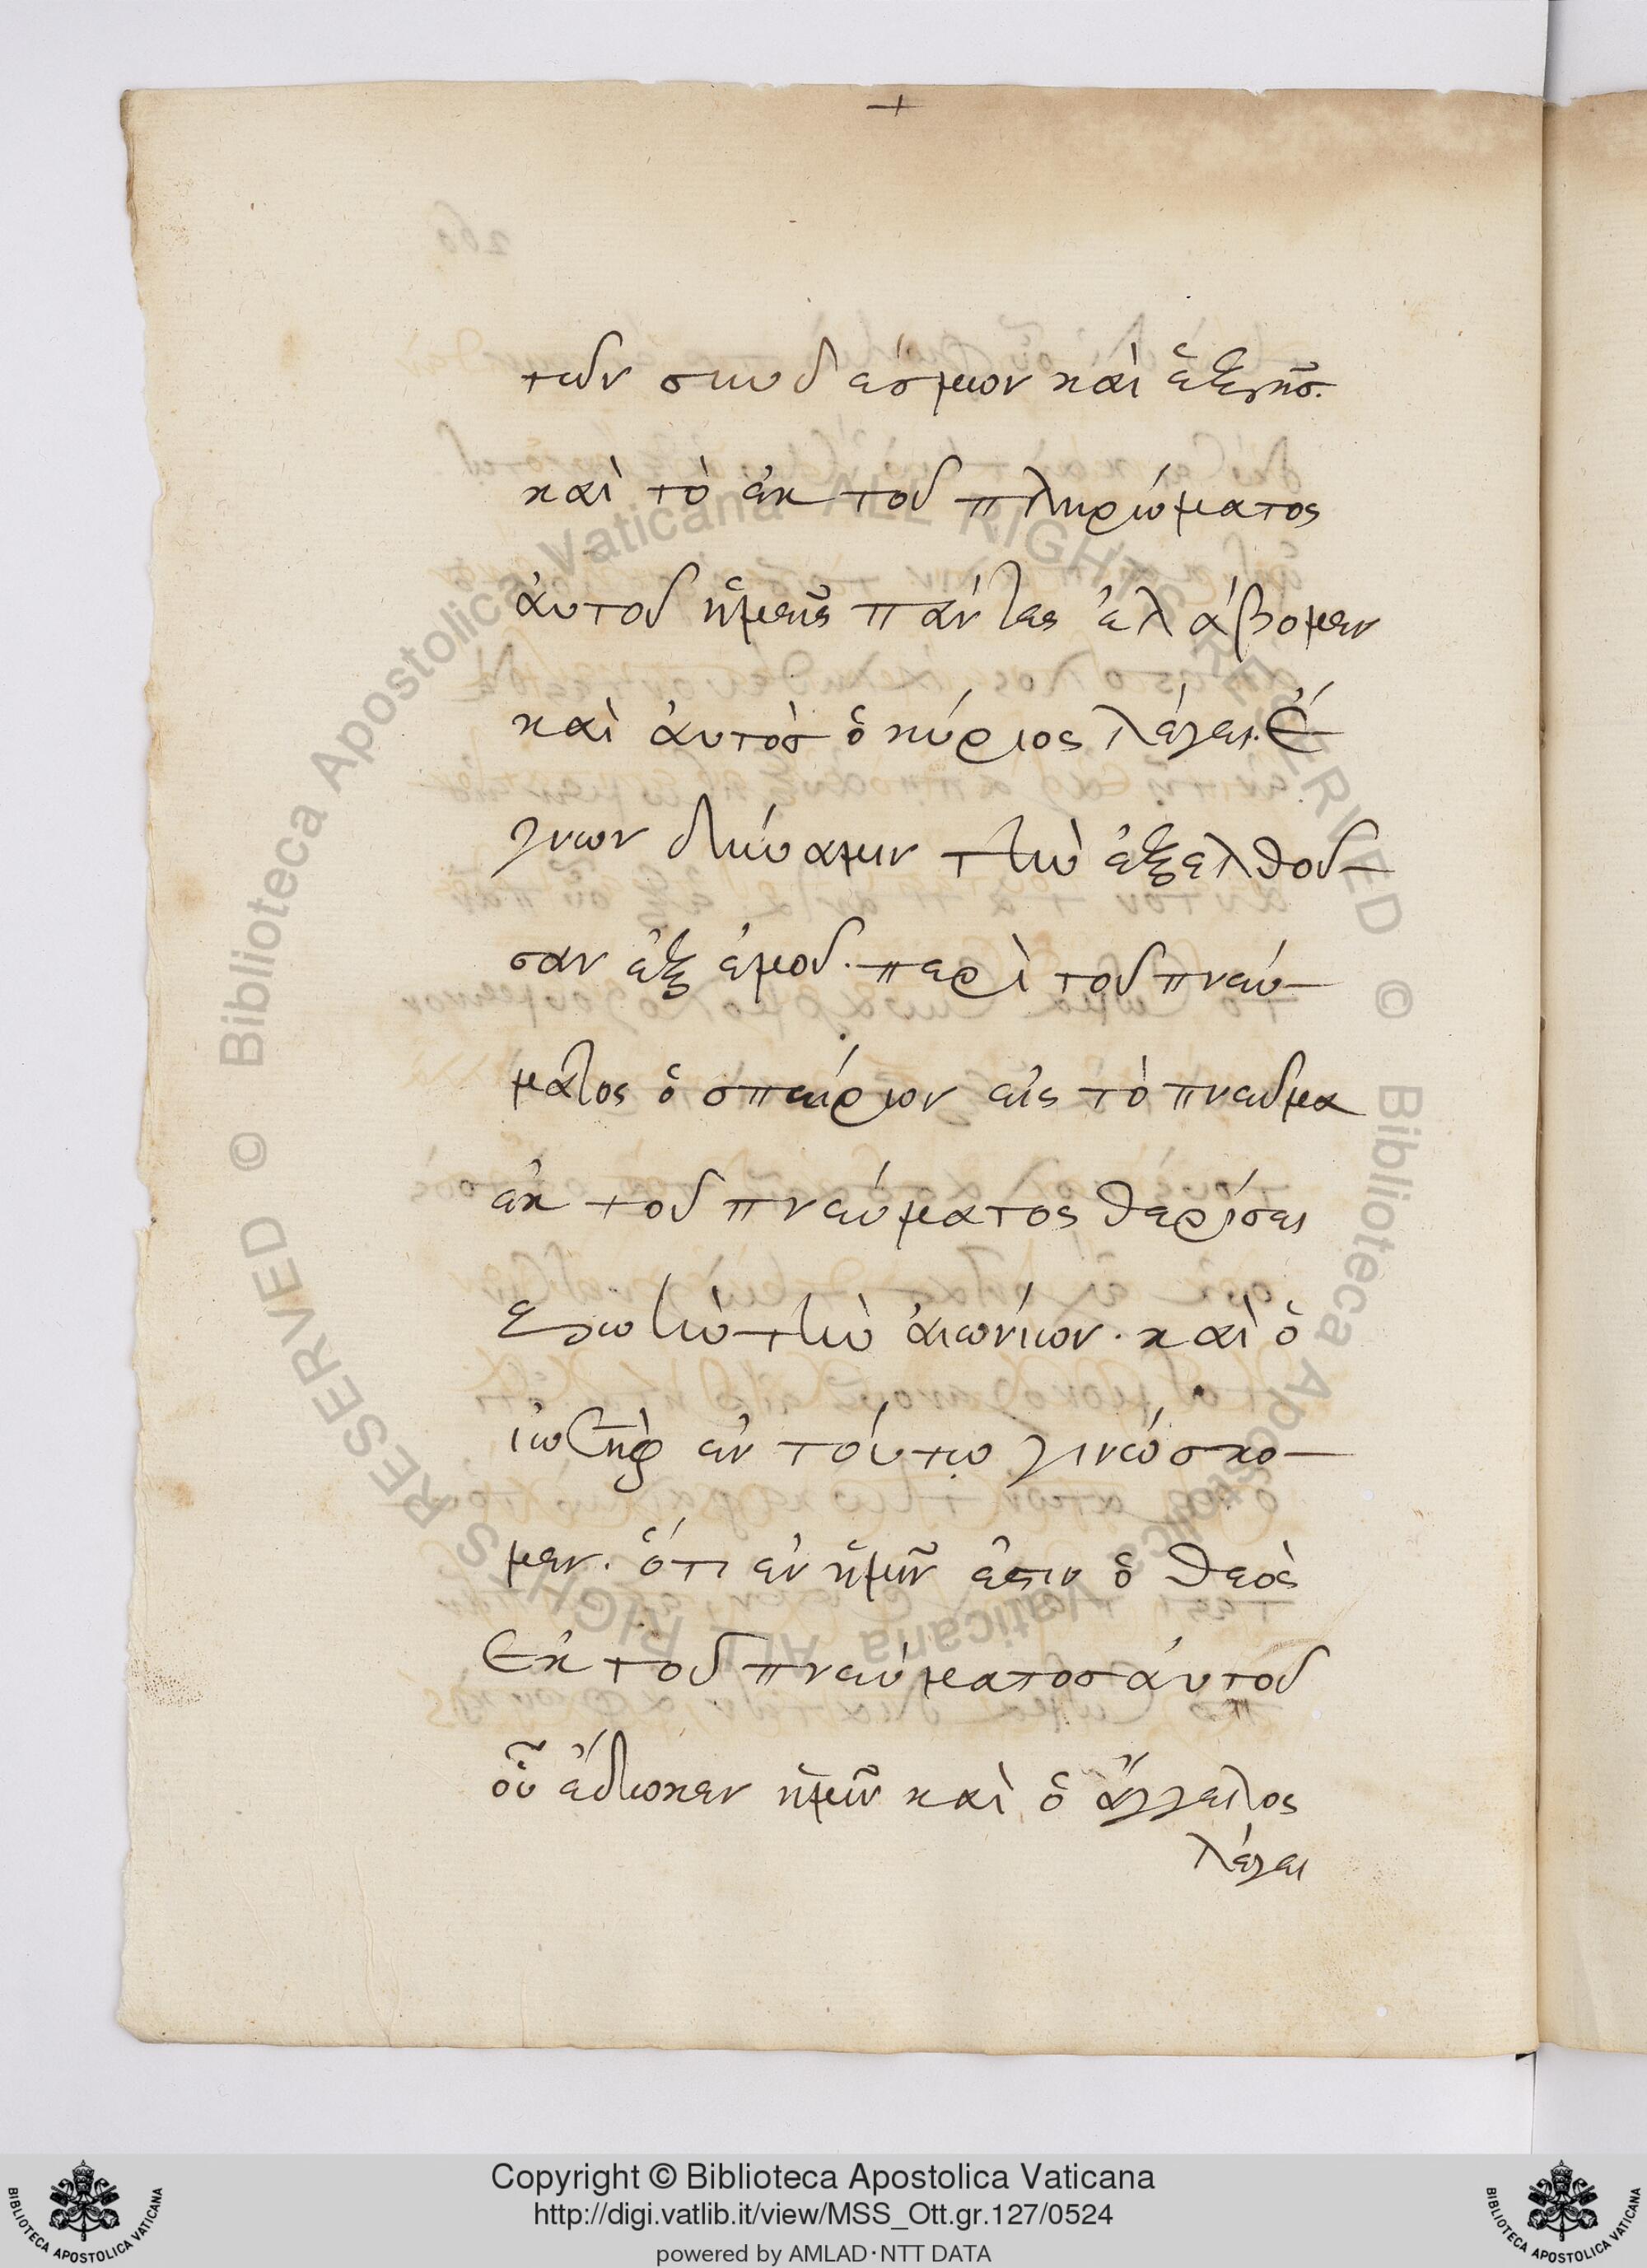 +
τῶν συνδέσμων καὶ ἑξῆσ.
καὶ τὸ ἐκ τοῦ πληρώματος
ἀυτοῦ ἡμεῖς πάντες ἐλάβομεν
καὶ ἀυτὸσ ὁ κύριος λέγει. Ἔ
γνων δύναμιν τὴν ἐξελθοῦ-
σαν ἐξ ἐμοῦ. περὶ τοῦ πνεύ-
ματος ὁ σπείρων εἰς τὸ πνεῦμα
ἐκ τοῦ πνεύματος θερίσει
ζωὴν τὴν ἀιώνιον. καὶ ὁ
ἐν τόυτω γινώσκο-
μεν. ὅτι ἐν ἡμῖν ἐστιν ὁ θεὸς
Ἐκ τοῦ πνεύματοσ ἀυτοῦ
οὗ ἔδωκεν ἡμῖν καὶ ὁ ἄγγελος
λέγει
Copyright © Biblioteca Apostolica Vaticana
http://digi.vatlib.it/view/MSS_Ott.gr.127/0524
powered by AMLAD·NTT DATA
BIBLIOTECA APOSTOLICA VATICANA
BIBLIOTECA APOSTOLICA VATICANA
© Biblioteca Apostolica Vaticana ALL RIGHTS RESERVED
© Biblioteca Apostolica Vaticana ALL RIGHTS RESERVED